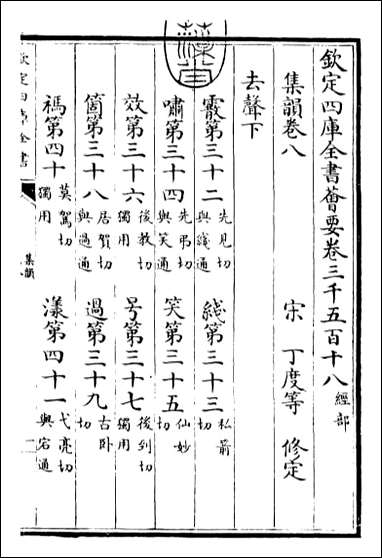 欽定四庫全書薈要卷三千五百十八 經部
集韻卷八 宋 丁度等 修定
去聲下
霰第三十二 先見切與綫通 綫第三十三 私箭切
嘯第三十四 先弔切與笑通 笑第三十五 仙妙切
效第三十六 後教切獨用 号第三十七 後到切獨用
箇第三十八 居賀切與過通 過第三十九 古臥切
禡第四十 莫駕切獨用 漾第四十一 弋亮切與宕通
欽定四庫全書
集韻